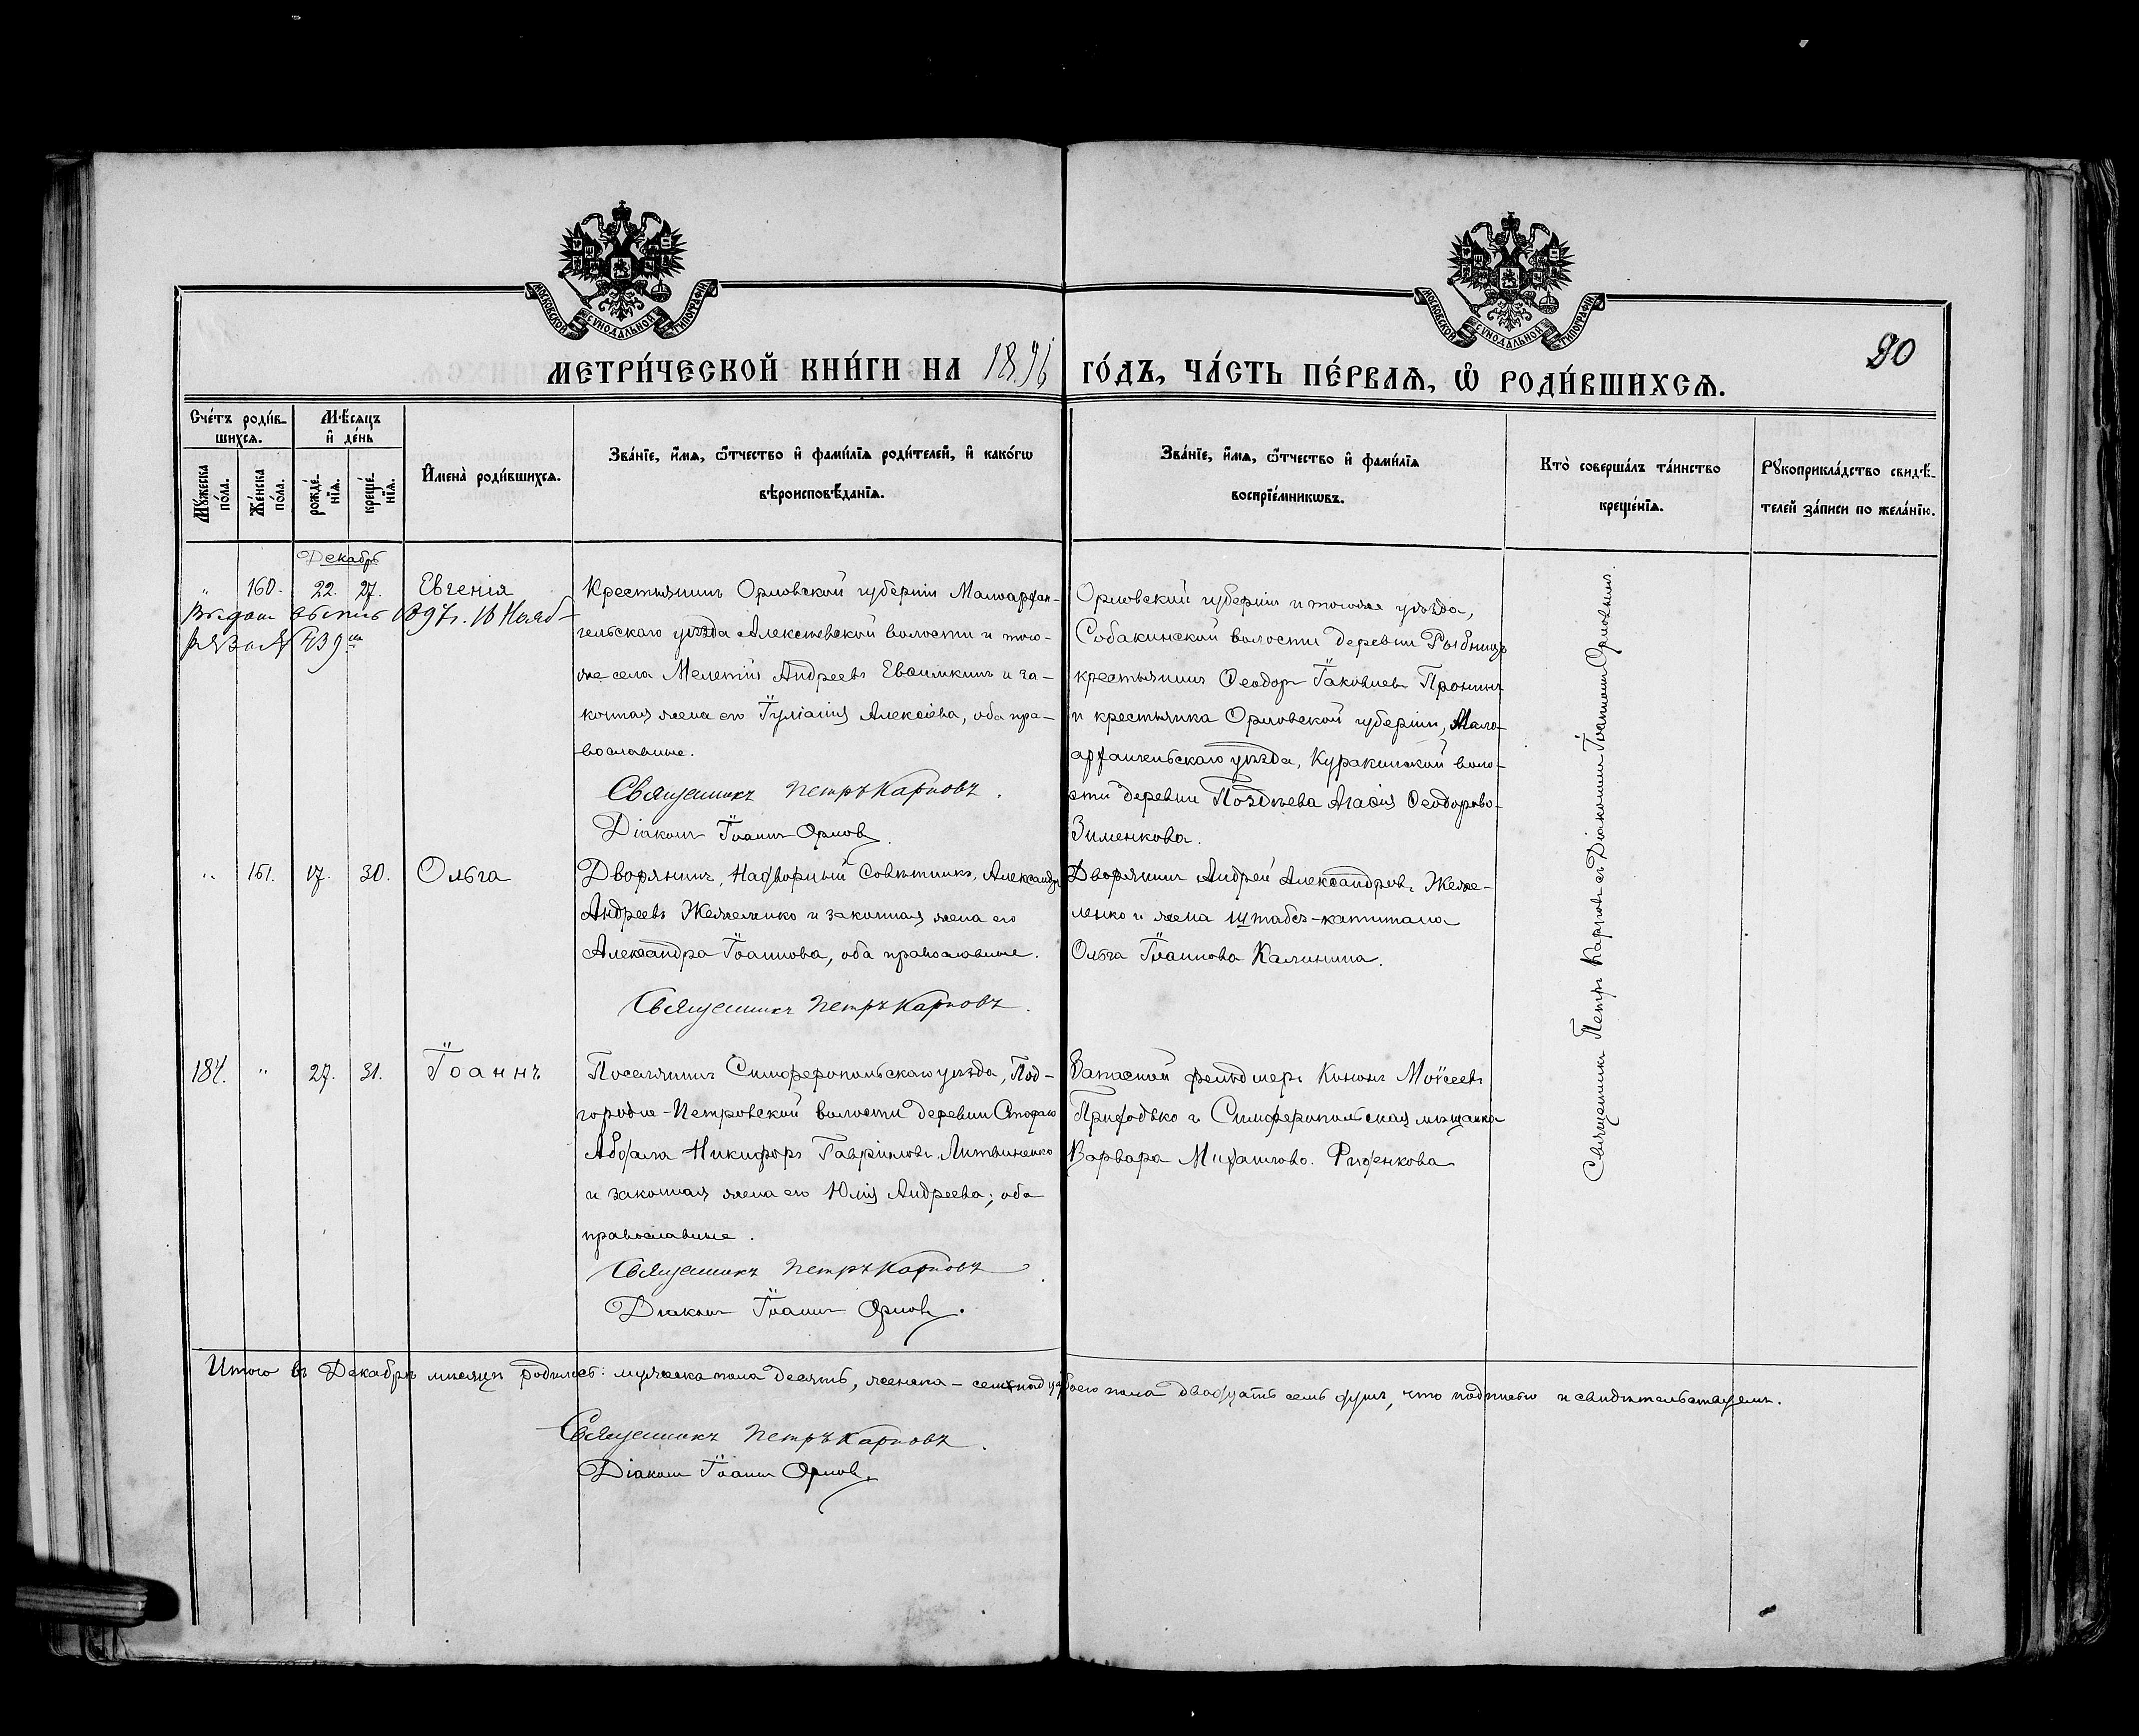 МОСКОВСКОЙ СУНОДАЛЬНОЙ ТИПОГРАФІИ
МОСКОВСКОЙ СУНОДАЛЬНОЙ ТИПОГРАФІИ
90
МЕТРИ́ЧЕСКОЙ КНИ́ГИ НА 1896 ГО́ДЪ, ЧА́СТЬ ПЕ́РВАѦ, Ѡ҆ РОДИ́ВШИХСѦ.
Сче́тъ роди́в-
шихсѧ.
Мѣ́сѧцъ
и҆ де́нь
Мꙋ́жеска
по́ла.
Же́нска
по́ла.
рожде́-
нїѧ.
креще́-
нїѧ.
И҆мена̀ роди́вшихсѧ.
Зва́нїе, и҆́мѧ, ѻ҆́тчество и҆ фами́лїѧ роди́телей, и҆ како́гѡ
вѣроисповѣ́данїѧ.
Зва́нїе, и҆́мѧ, ѻ҆́тчество и҆ фами́лїѧ
воспрїе́мникѡвъ.
Кто̀ соверша́лъ та́инство
креще́нїѧ.
Рꙋкоприкла́дство свидѣ́-
телей за́писи по жела́нїю.
Декабрь
" 160. 22. 27. Евгенія
Выдана выпись 1897 г. 16 Нояб-
ря за № 439
Крестьянинъ Орловской губерніи Малоархан-
гельскаго уѣзда Алексѣевской волости и того-
же села Мелетій Андреевъ Евсимкинъ и за-
конная жена его Іуліанія Алексіева, оба пра-
вославные.
Священникъ Петръ Карповъ.
Діаконъ Іоаннъ Орловъ.
Орловской губерніи и тогоже уѣзда,
Собакинской волости деревни Рыбницъ
крестьянинъ Ѳеодоръ Іаковлевъ Пронинъ
и крестьянка Орловской губерніи, Мало-
архангельскаго уѣзда, Куракинской воло-
сти деревни Позднѣева Агаѳія Ѳеодорова
Зименкова.
" 161. 17. 30. Ольга
Дворянинъ, Надворный Совѣтникъ, Александръ
Андреевъ Желеленко и законная жена его
Александра Іоаннова, оба православные.
Священникъ Петръ Карповъ.
Дворянинъ Андрей Александровъ Желе-
ленко и жена штабсъ-капитана
Ольга Іоаннова Калинина.
184. " 27. 31. Іоаннъ
Поселянинъ Симферопольскаго уѣзда, Под-
городне-Петровской волости деревни Стараго
Абдала Никифоръ Гавріиловъ Литвиненко
и законная жена его Юлія Андреева; оба
православные.
Священникъ Петръ Карповъ
Діаконъ Іоаннъ Орловъ.
Запасной фельдшеръ Кононъ Моѵсеевъ
Приходько и Симферопольская мѣщанка
Варвара Михаилова
Священникъ Петръ Карповъ съ Діакономъ Іоанномъ Орловымъ.
Итого въ Декабрѣ мѣсяцѣ родилось: мужеска пола десять, женска – семнадцать, обоего пола двадцать семь душъ, что подписью и свидѣтельствуемъ.
Священникъ Петръ Карповъ.
Діаконъ Іоаннъ Орловъ.